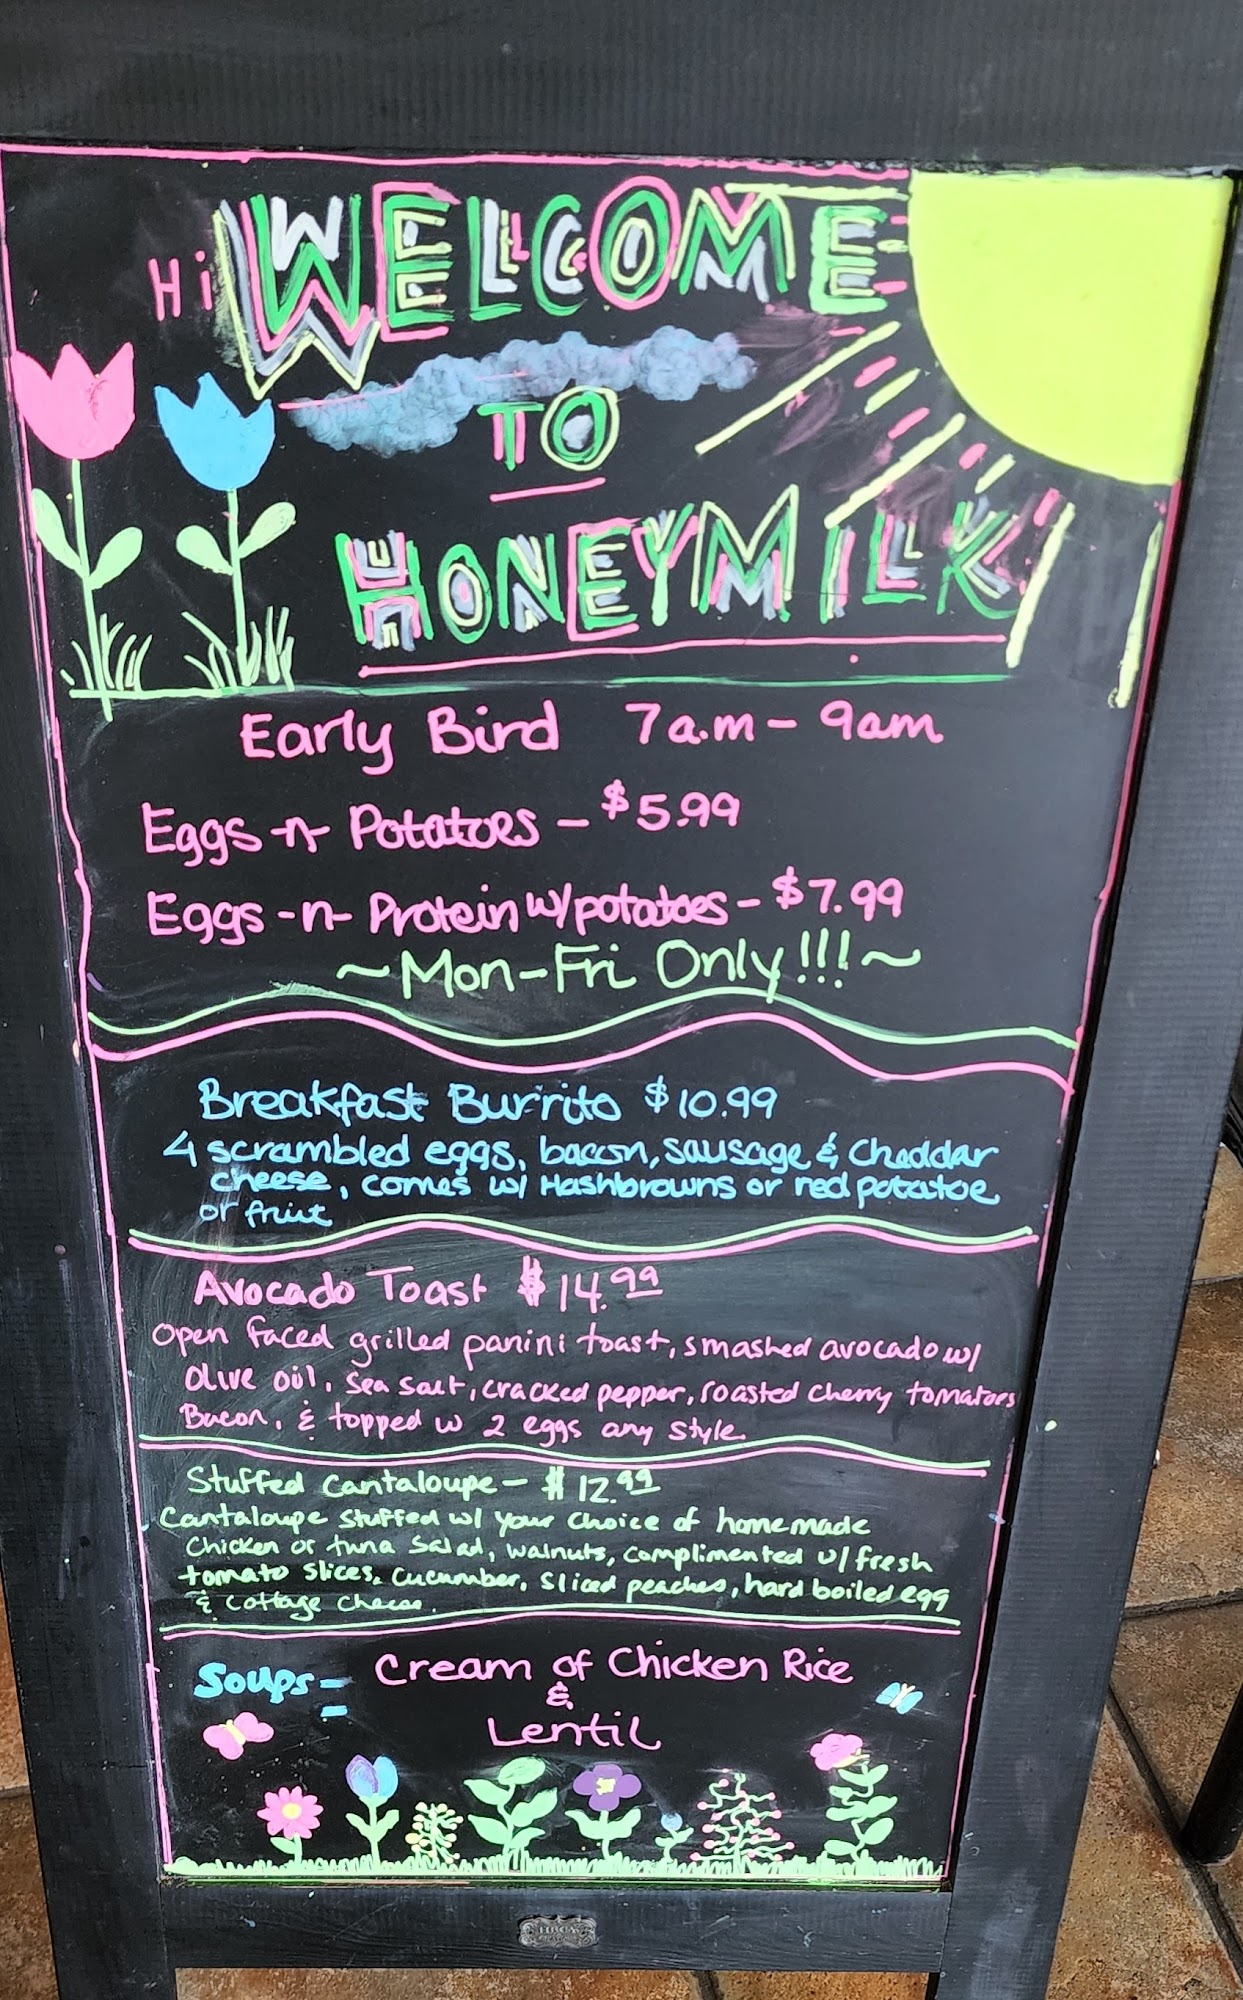 Hi WELCOME
TO
HONEYMILK
Early Bird 7a.m - 9am
Eggs -n- Potatoes - $5.99
Eggs -n- Protein w/potatoes - $7.99
~Mon-Fri Only!!!~
Breakfast Burrito $10.99
4 scrambled eggs, bacon, sausage & Cheddar
cheese, comes w/ Hashbrowns or red potatoe
or fruit
Avocado Toast $14.99
Open faced grilled panini toast, smashed avocado w/
Olive oil, sea salt, cracked pepper, roasted cherry tomatoes
Bacon, & topped w 2 eggs any style.
Stuffed Cantaloupe - $12.99
Cantaloupe stuffed w/ your choice of homemade
Chicken or tuna salad, walnuts, complimented w/ fresh
tomato slices, cucumber, sliced peaches, hard boiled egg
& cottage cheese.
Soups= Cream of Chicken Rice
&
Lentil